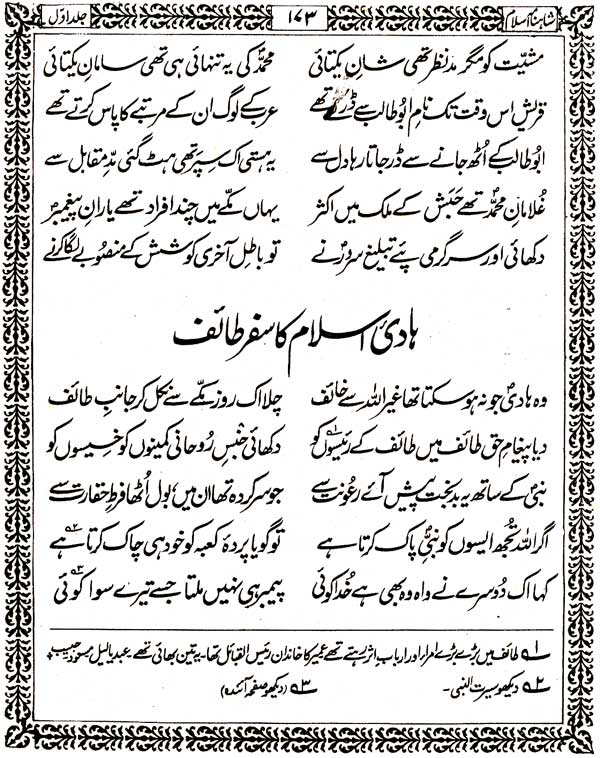 شاہنامۂ اسلام ۱۷۳ جلد اوّل
مشیّت کو مگر مدِ نظر تھی شانِ یکتائی محمدؐ کی یہ تنہائی ہی تھی سامانِ یکتائی
قریش اس وقت تک نامِ ابُوطالب سے ڈرتے تھے عرب کے لوگ ان کے مرتبے کا پاس کرتے تھے
ابُوطالب کے اُٹھ جانے سے ڈر جاتا رہا دل سے یہ ہستی اک سِپر تھی ہٹ گئی مدِّ مقابل سے
غُلامانِ محمدؐ تھے حَبَش کے ملک میں اکثر یہاں مکّے میں چند افراد تھے یارانِ پیغمبرؐ
دکھائی اور سرگرمی پئے تبلیغ سرورؐ نے تو باطِل آخری کوشش کے منصُوبے لگا کرنے
ہادیٔ اسلام کا سفرِ طائف
وہ ہادیؐ جو نہ ہو سکتا تھا غیر اللہ سے خائف چلا اک روز مکّے سے نکل کر جانبِ طائف
دیا پیغامِ حق طائف میں طائف کے رئیسوں کو ۱؎ دکھائی جنسِ رُوحانی کمینوں کو خسیسوں کو
نبیؐ کے ساتھ یہ بدبخت پیش آئے رعُونت سے جو سرکردہ تھا ان میں، بول اُٹھا فرطِ حقارت سے
اگر اللہ تُجھ ایسوں کو نبیؐ پاک کرتا ہے تو گویا پردۂ کعبہ کو خود ہی چاک کرتا ہے ۲؎
کہا اک دُوسرے نے واہ وہ بھی ہے خُدا کوئی پیمبر ہی نہیں ملتا جسے تیرے سوا کوئی ۳؎
۱؎ طائف میں بڑے بڑے امراء اور اربابِ اثر رہتے تھے عمیر کا خاندان رئیس القبائل تھا۔ یہ تین بھائی تھے عبدیالیل مسعود حبیب
۲؎ دیکھو سیرت النبی۔ ۳؎ (دیکھو صفحہ آئندہ)